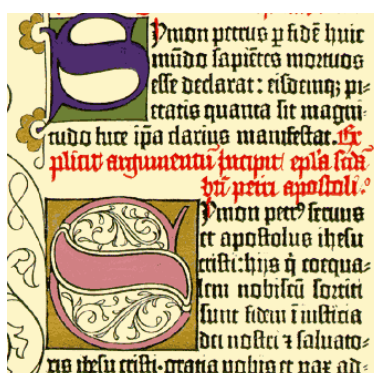 Symon petrus ꝑ fidē huic
mūdo sapiētes mortuos
esse declarat: eisdemqꝫ pi-
etatis quanta sit magni-
tudo luce ip̄a clarius manifestat. Ex-
plicit argumentū Incipit epl̄a scd̄a
bt̄i petri apostoli.
Symon petrꝰ seruus
et apostolus ihesu
cristi: hijs q̄ coequa-
lem nobiscū sortiti
sunt fidem ī iusticia
dei nostri ⁊ saluato-
ris ihesu cristi. gratia vobis et pax ad-